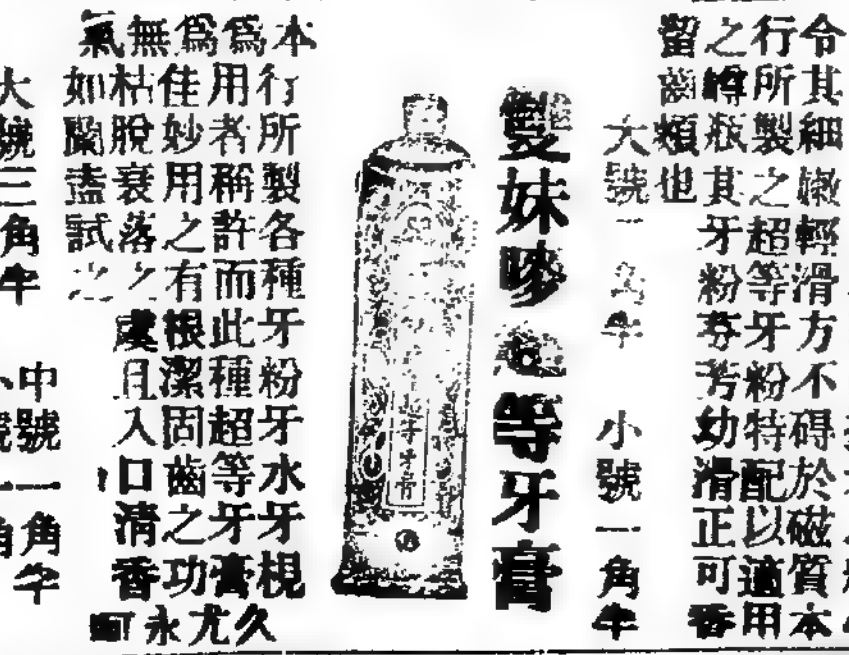 令其細嫩輕滑方不碍於磁質本
行所製之超等牙粉特配以適用
之樽瓶其牙粉芬芳幼滑正可香
留齒頰也
大號 角半 小號一角半
雙妹嘜超等牙膏
超等牙膏
本行所製各種牙粉牙水牙梘久
爲用者稱許而此種超等牙膏尤
爲佳妙用之有根潔固齒之功永
無枯脫衰落之虞且入口清香
氣如蘭盍試之
大號三角半 中號一角半